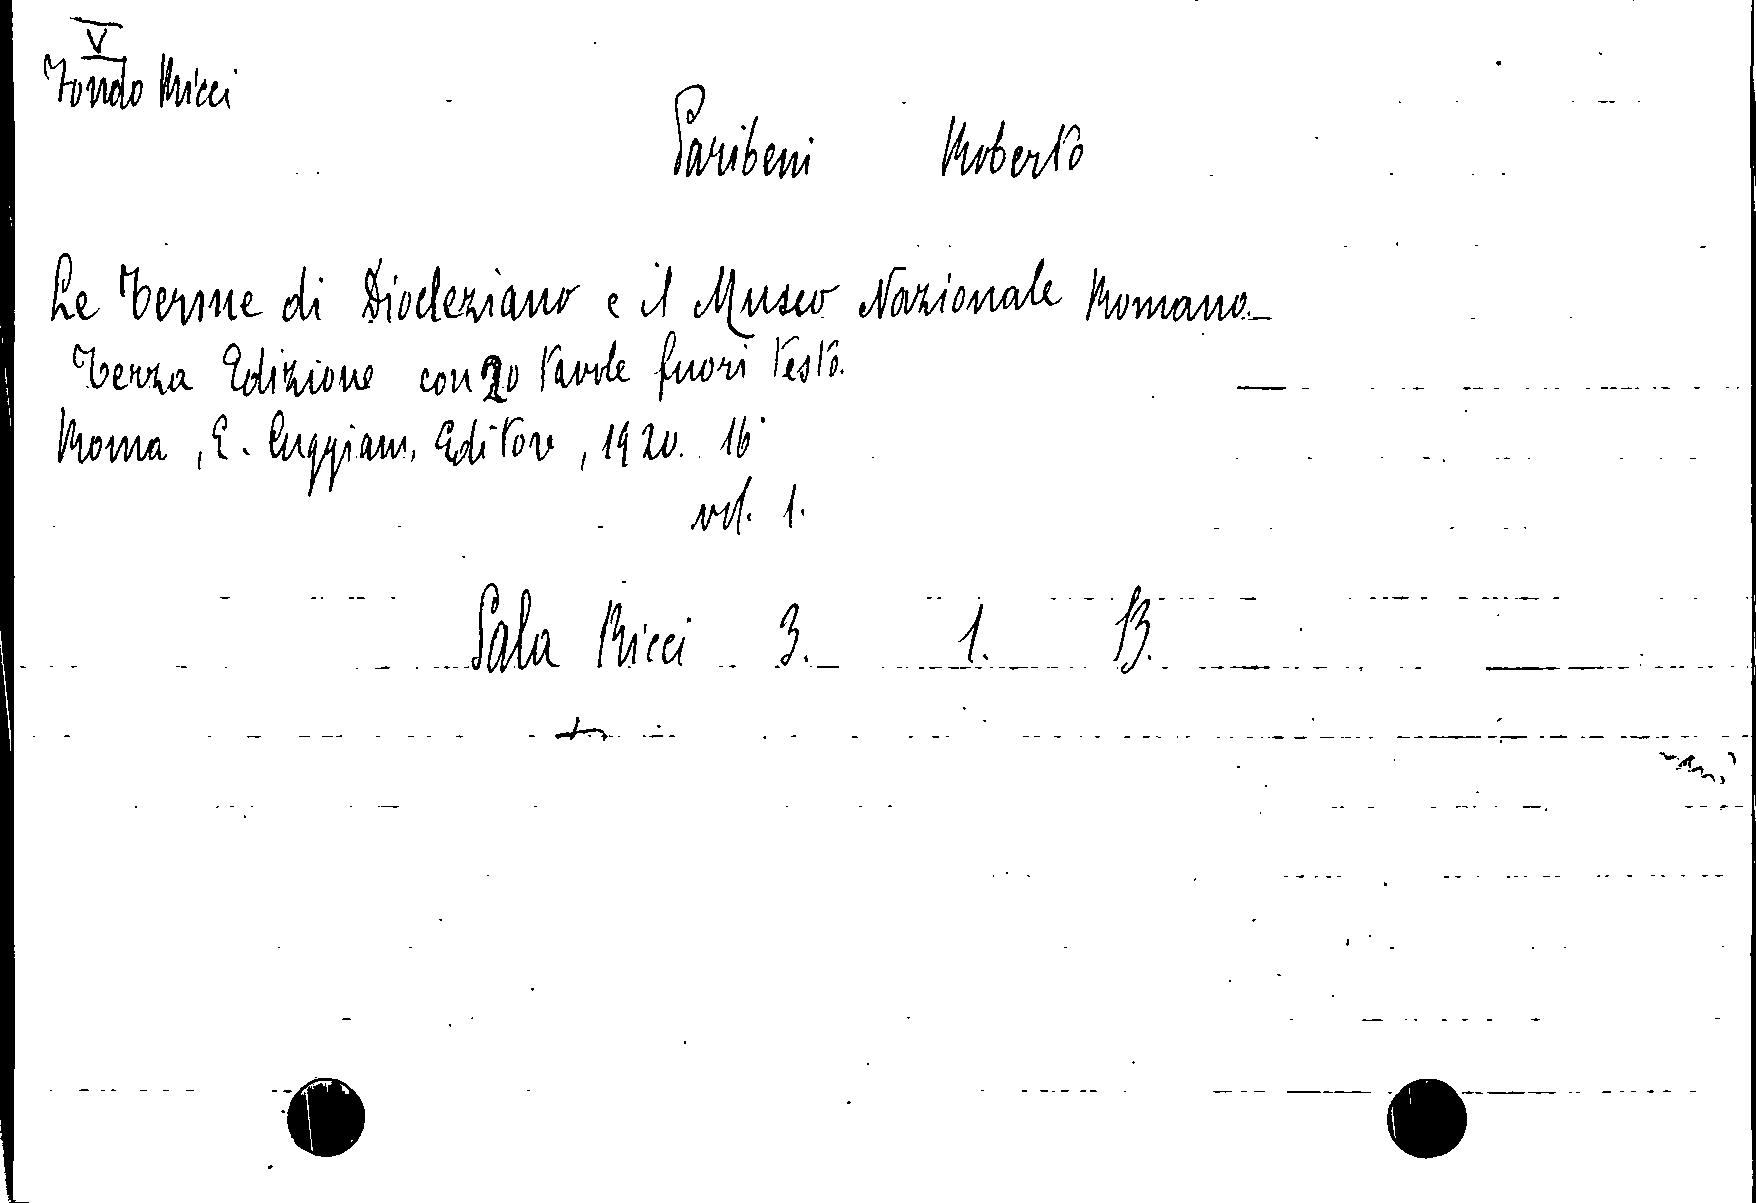 V
Fondo Ricci
Paribeni Roberto
Le Terme di Diocleziano e il Museo Nazionale Romano.
Terza Edizione con 20 tavole fuori testo.
Roma, E. Cuggiani, Editore, 1920. 16°
vol. 1.
Sala Ricci 3. 1. B.